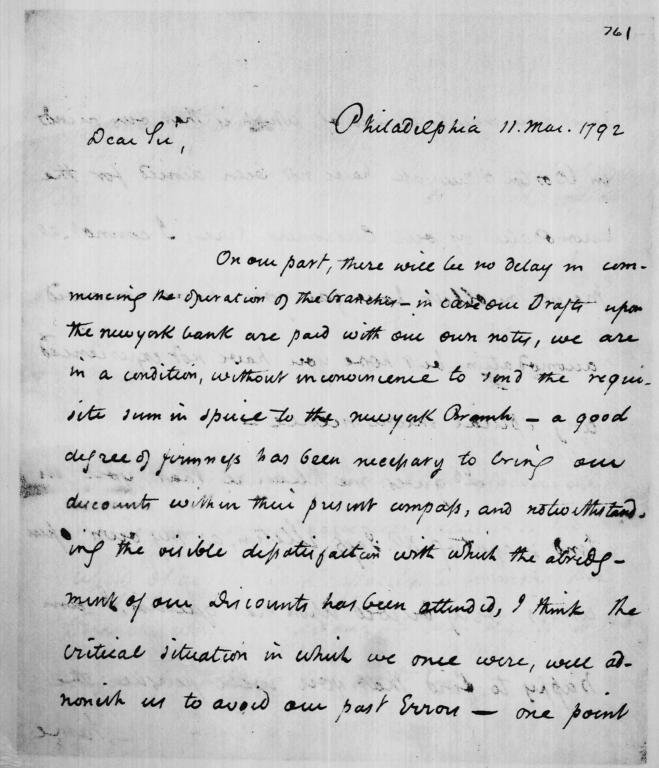 761
Philadelphia 11. Mar. 1792
Dear Sir,
On our part, there will be no delay in com-
mencing the operation of the branches – in case our Drafts upon
the newyork bank are paid with our own notes, we are
in a condition, without inconvenience to send the requi-
site sum in specie to the newyork Branch – a good
degree of firmness has been necessary to bring our
discounts within their present compass, and notwithstand-
ing the visible dissatisfaction with which the abridg-
ment of our discounts has been attended, I think the
critical situation in which we once were, will ad-
monish us to avoid our past Errors – one point